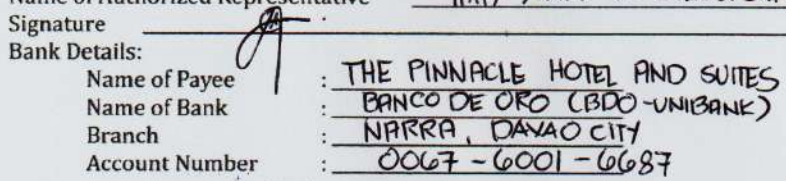 Name of Authorized Representative
Signature
Bank Details:
Name of Payee : THE PINNACLE HOTEL AND SUITES
Name of Bank : BANCO DE ORO (BDO-UNIBANK)
Branch : NARRA, DAVAO CITY
Account Number : 0067-6001-6687